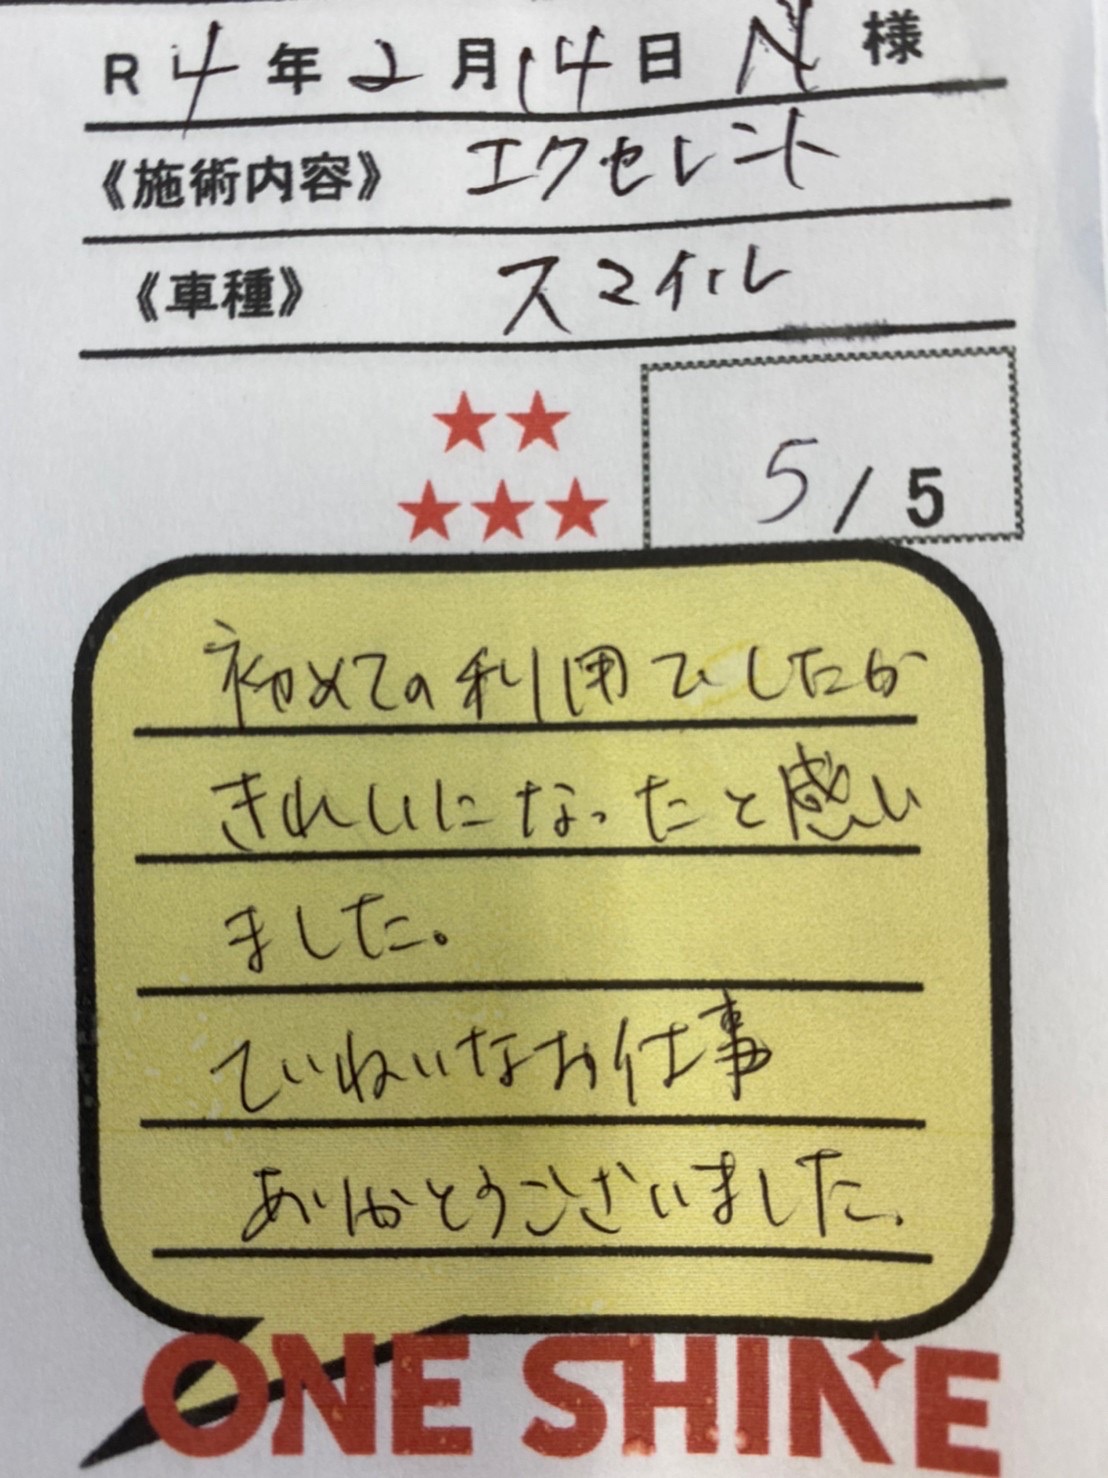 R4年2月14日 N様
《施術内容》 エクセレント
《車種》 スマイル
5/5
初めての利用でしたが
きれいになったと感い
ました。
ていねいなお仕事
ありがとうございました。
ONE SHINE